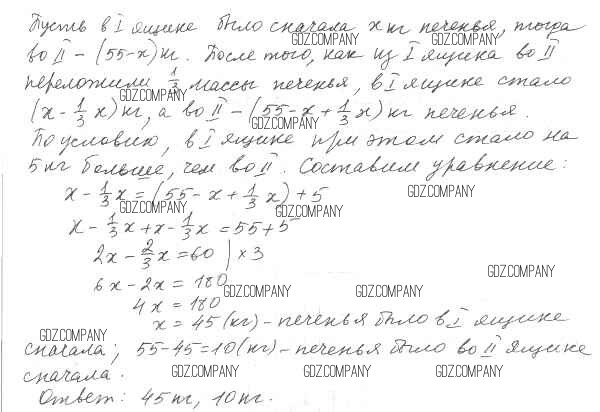 Пусть в I ящике было сначала x кг печенья, тогда
GDZ.COMPANY GDZ.COMPANY
во II – (55-x) кг. После того, как из I ящика во II
переложили 1/3 массы печенья, в I ящике стало
GDZ.COMPANY
(x - 1/3 x) кг, а во II – (55 - x + 1/3 x) кг печенья.
GDZ.COMPANY
По условию, в I ящике при этом стало на
5 кг больше, чем во II. Составим уравнение:
x - 1/3 x = (55 - x + 1/3 x) + 5
GDZ.COMPANY
GDZ.COMPANY GDZ.COMPANY
x - 1/3 x + x - 1/3 x = 55 + 5
2x - 2/3 x = 60 | × 3
GDZ.COMPANY
6x - 2x = 180
GDZ.COMPANY GDZ.COMPANY
4x = 180
x = 45 (кг) – печенья было в I ящике
GDZ.COMPANY
сначала; 55-45=10 (кг) – печенья было во II ящике
сначала.
GDZ.COMPANY GDZ.COMPANY GDZ.COMPANY
Ответ: 45 кг, 10 кг.